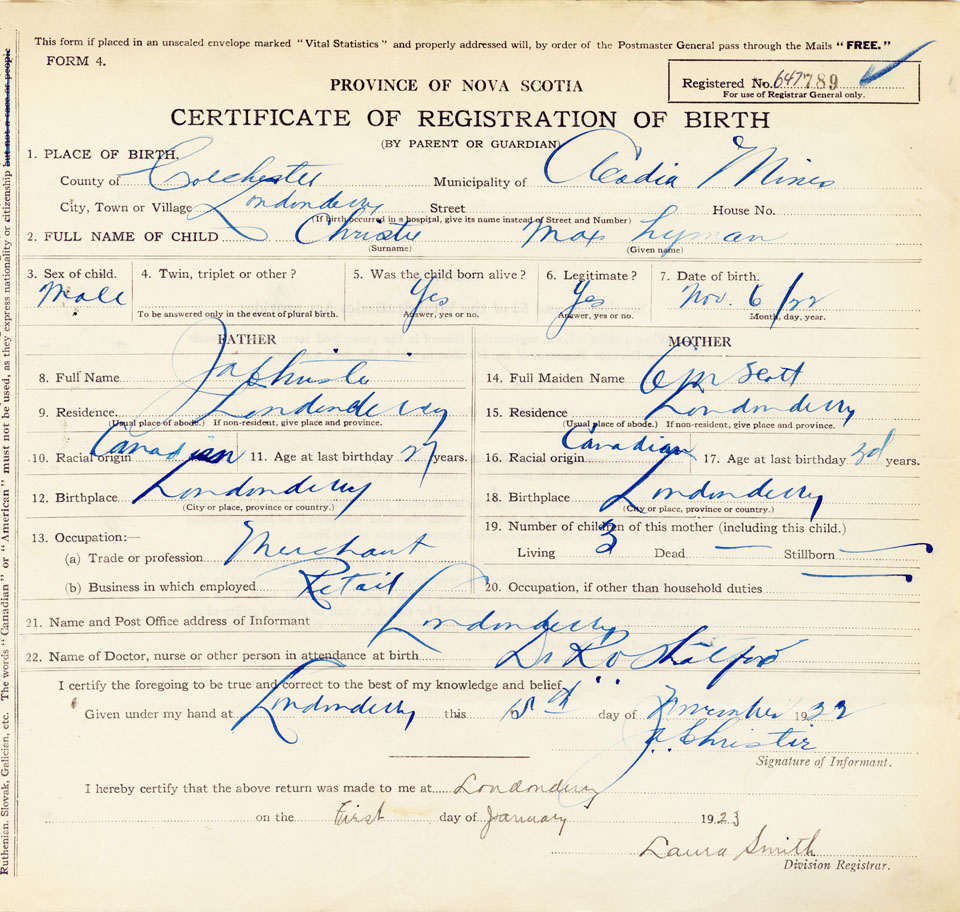 This form if placed in an unsealed envelope marked "Vital Statistics" and properly addressed will, by order of the Postmaster General pass through the Mails "FREE."
FORM 4.
Registered No. 647 789
For use of Registrar General only.
PROVINCE OF NOVA SCOTIA
CERTIFICATE OF REGISTRATION OF BIRTH
(BY PARENT OR GUARDIAN)
1. PLACE OF BIRTH.
County of Colchester Municipality of Acadia Mines
City, Town or Village Londonderry Street House No.
(If birth occurred in a hospital, give its name instead of Street and Number)
2. FULL NAME OF CHILD Christie Max Lyman
(Surname) (Given name)
3. Sex of child. 4. Twin, triplet or other? 5. Was the child born alive? 6. Legitimate? 7. Date of birth.
Male Yes Yes Nov. 6/22
To be answered only in the event of plural birth. Answer, yes or no. Answer, yes or no. Month, day, year.
FATHER MOTHER
8. Full Name Christie 14. Full Maiden Name Scott
9. Residence. Londonderry 15. Residence Londonderry
(Usual place of abode.) If non-resident, give place and province. (Usual place of abode.) If non-resident, give place and province.
10. Racial origin Canadian 11. Age at last birthday 27 years. 16. Racial origin Canadian 17. Age at last birthday years.
12. Birthplace Londonderry 18. Birthplace Londonderry
(City or place, province or country.) (City or place, province or country.)
13. Occupation:— 19. Number of children of this mother (including this child.)
(a) Trade or profession Merchant Living 3 Dead — Stillborn —
(b) Business in which employed Retail 20. Occupation, if other than household duties —
21. Name and Post Office address of Informant Londonderry
22. Name of Doctor, nurse or other person in attendance at birth Dr R O Shatford
I certify the foregoing to be true and correct to the best of my knowledge and belief.
Given under my hand at Londonderry this 15th day of November 1922
J. Christie
Signature of Informant.
I hereby certify that the above return was made to me at Londonderry
on the First day of January 1923
Laura Smith
Division Registrar.
Ruthenian, Slovak, Galician, etc. The words "Canadian" or "American" must not be used, as they express nationality or citizenship but not a race or people